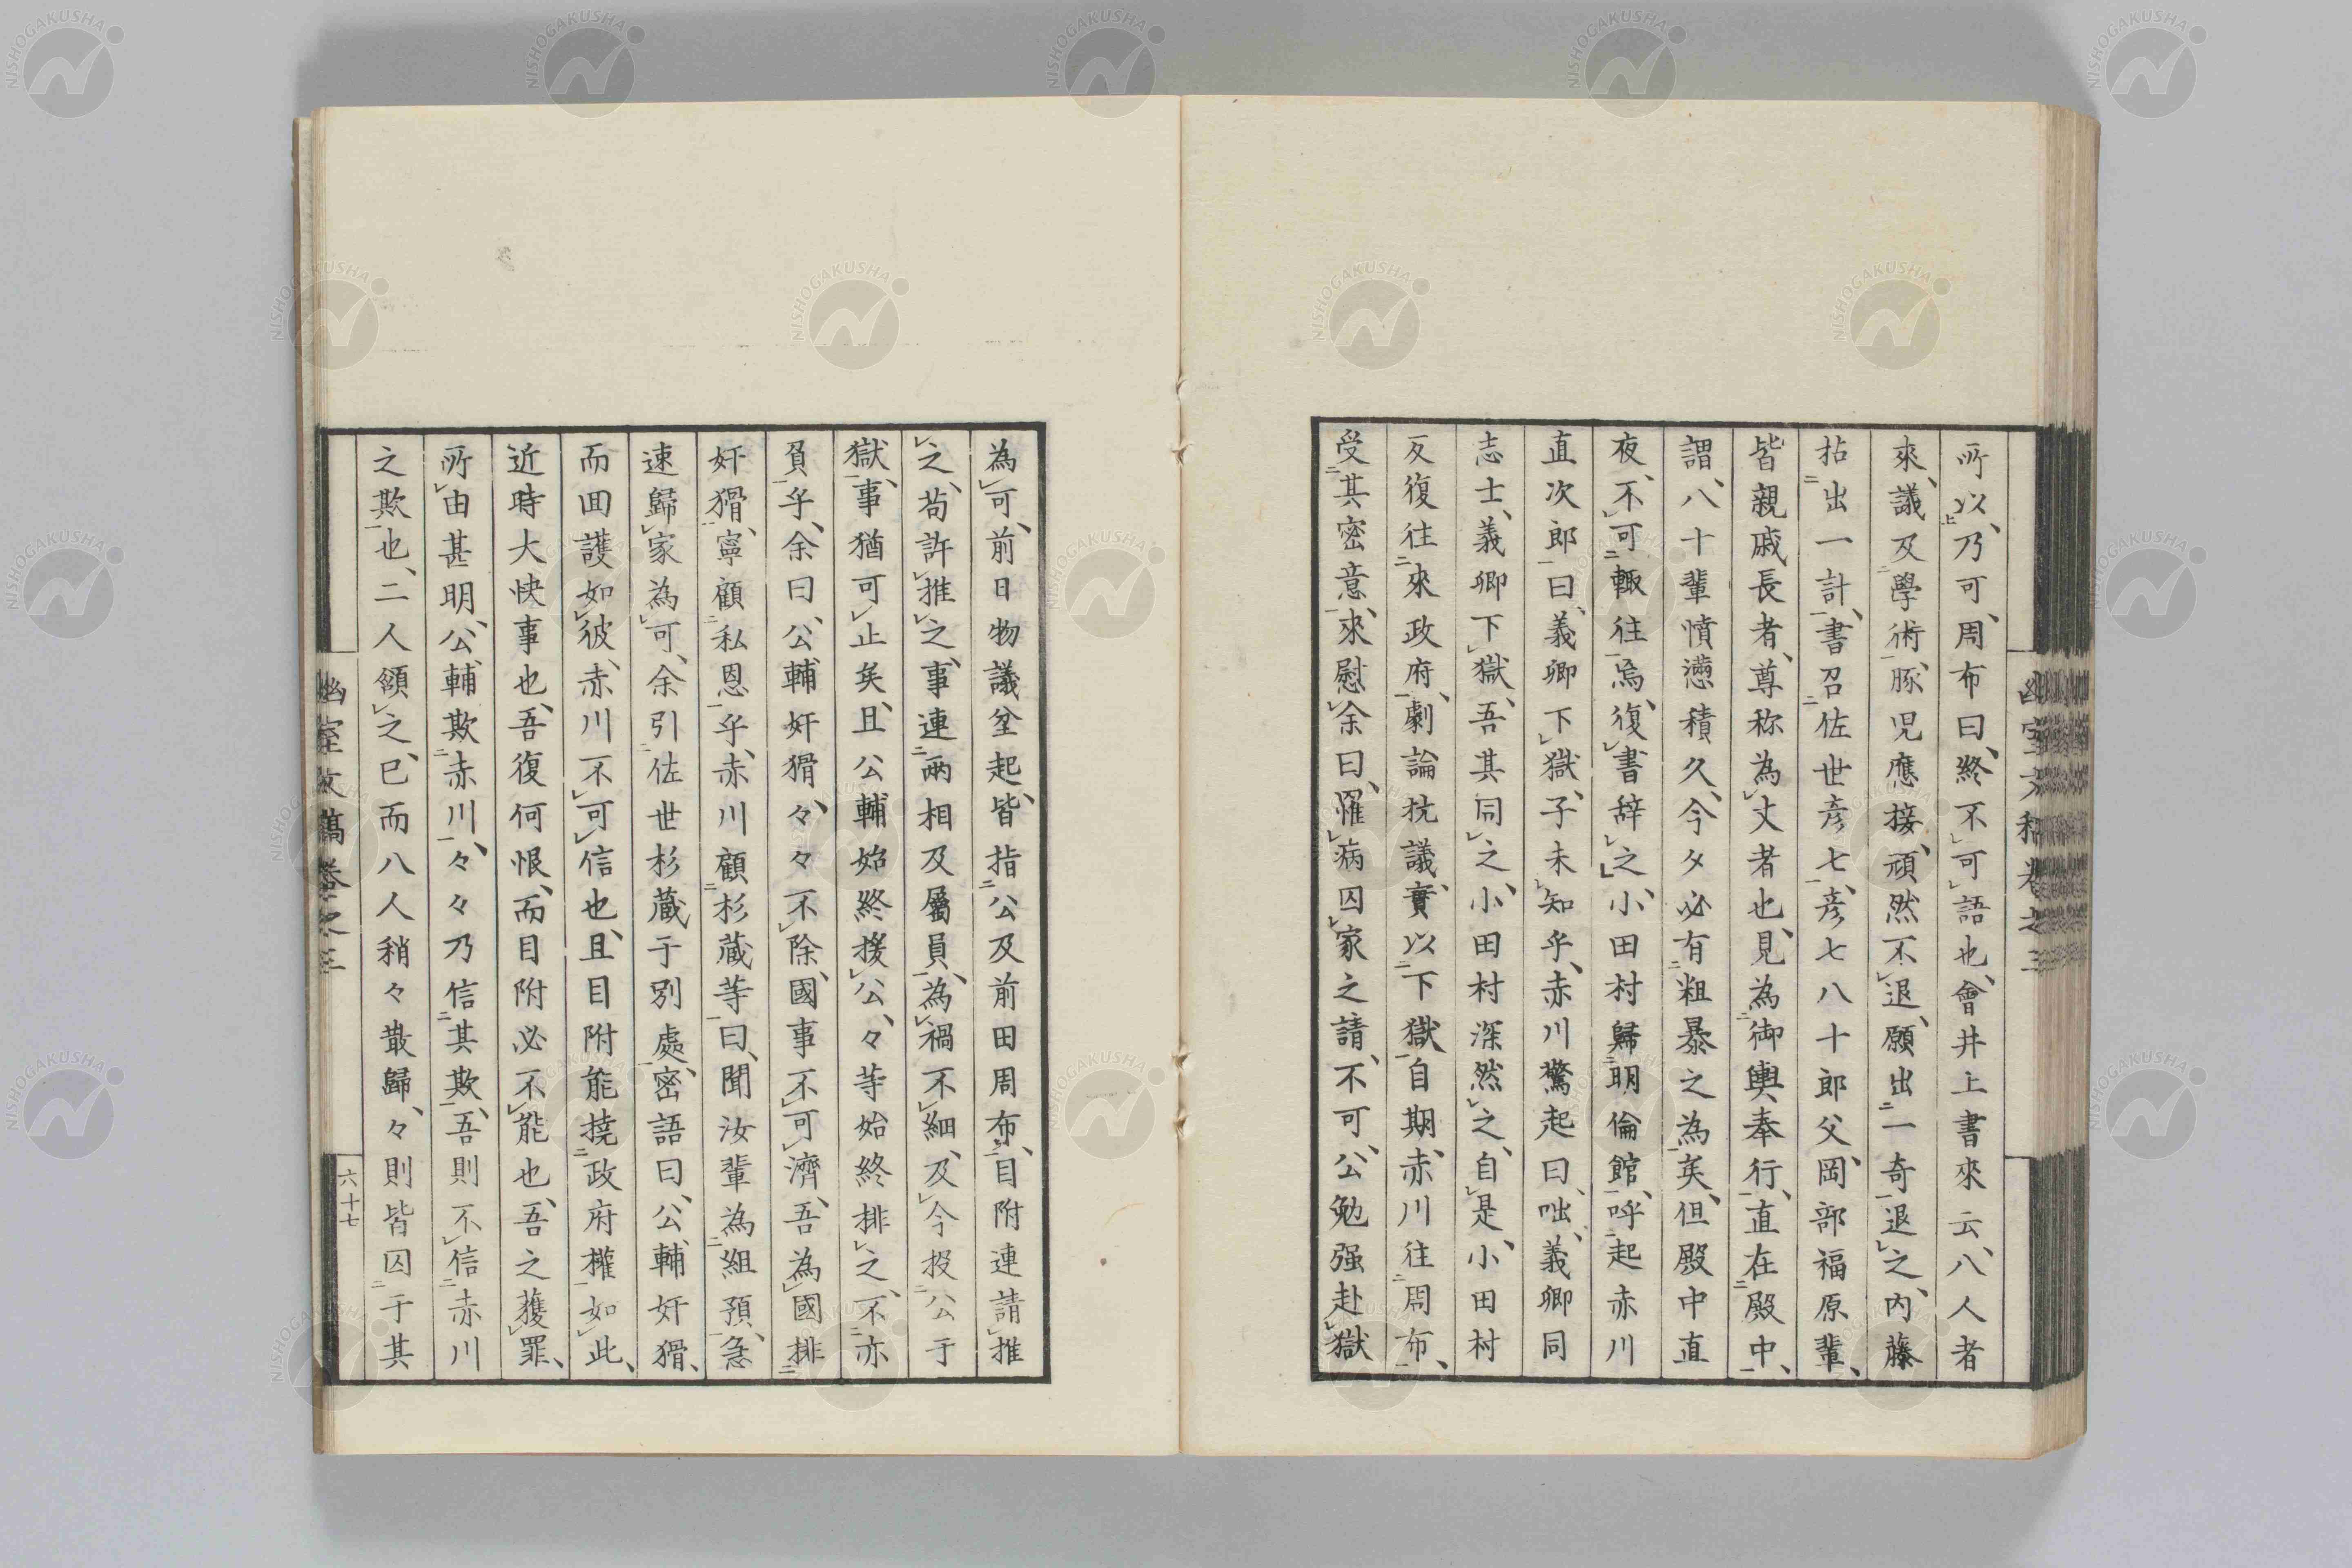 所以、乃可、周布曰、終不可語也、會井上書來云、八人者
來、議及學術、豚児應接、頑然不退、願出一奇退之、内藤
拈出一計、書召佐世彦七、彦七八十郎父、岡部福原輩、
皆親戚長者、尊称為丈者也、見為御輿奉行、直在殿中、
謂、八十輩憤懣積久、今夕必有粗暴之為矣、但殿中直
夜、不可輙往焉、復書辞之、小田村歸明倫館、呼起赤川
直次郎曰、義卿下獄、子未知乎、赤川驚起曰、咄、義卿同
志士、義卿下獄、吾其同之、小田村深然之、自是、小田村
反復往來政府、劇論抗議、實以下獄自期、赤川往周布、
受其密意、來慰余曰、罹病囚家之請、不可、公勉强赴獄
為可、前日物議坌起、皆指公及前田周布、目附連請推
之、苟許推之、事連兩相及屬員、為禍不細、及今投公于
獄、事猶可止矣、且公輔始終援公、々等始終排之、不亦
負乎、余曰、公輔奸猾、々々不除、國事不可濟、吾為國排
奸猾、寧顧私恩乎、赤川顧杉蔵等曰、聞汝輩為組預、急
速歸家為可、余引佐世杉蔵于別處、密語曰、公輔奸猾、
而回護如彼、赤川不可信也、且目附能撓政府權如此、
近時大快事也、吾復何恨、而目附必不能也、吾之獲罪、
所由甚明、公輔欺赤川、々々乃信其欺、吾則不信赤川
之欺也、二人領之、已而八人稍々散歸、々則皆囚于其
幽室文稿卷之三
六十七